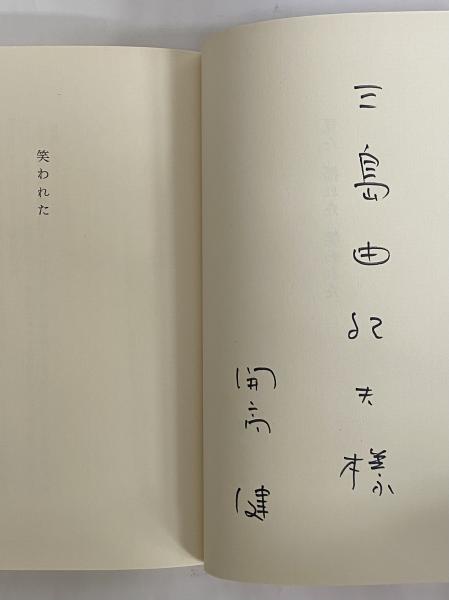 三島由紀夫様
開高健
笑われた